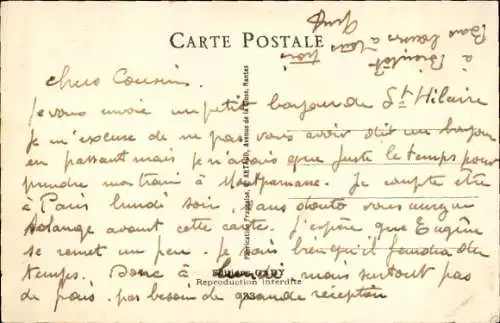 CARTE POSTALE
à Bientôt
Bons baisers à tous
trois
chers Cousins.
je vous envoie un petit bonjour de St Hilaire
je m'excuse de ne pas vous avoir dit un bonjour
en passant mais je n'avais que juste le temps pour
prendre mon train à Montparnasse. Je compte être
à Paris lundi soir, sans doute vous aurez vu
Solange avant cette carte. J'espère que Eugène
se remet un peu. je sais bien qu'il faudra du
temps. Donc à lundi mais surtout pas
de frais. pas besoin de grande réception
Reproduction interdite
Fabrication Française, Avenue de la Nantes